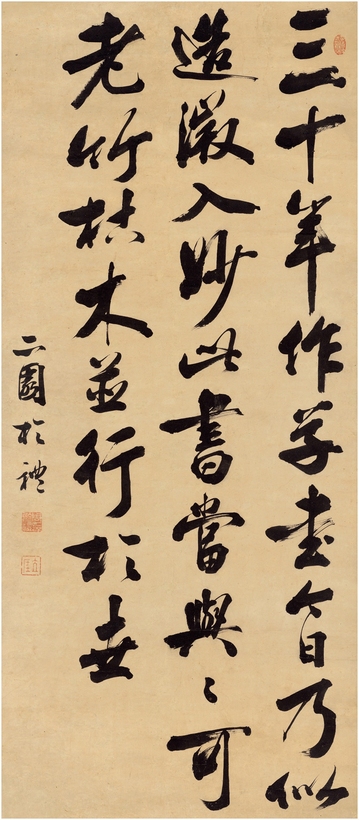 三十年作草書今日乃似
造微入妙此書當與〻可
老竹枯木並行於世
園於禮